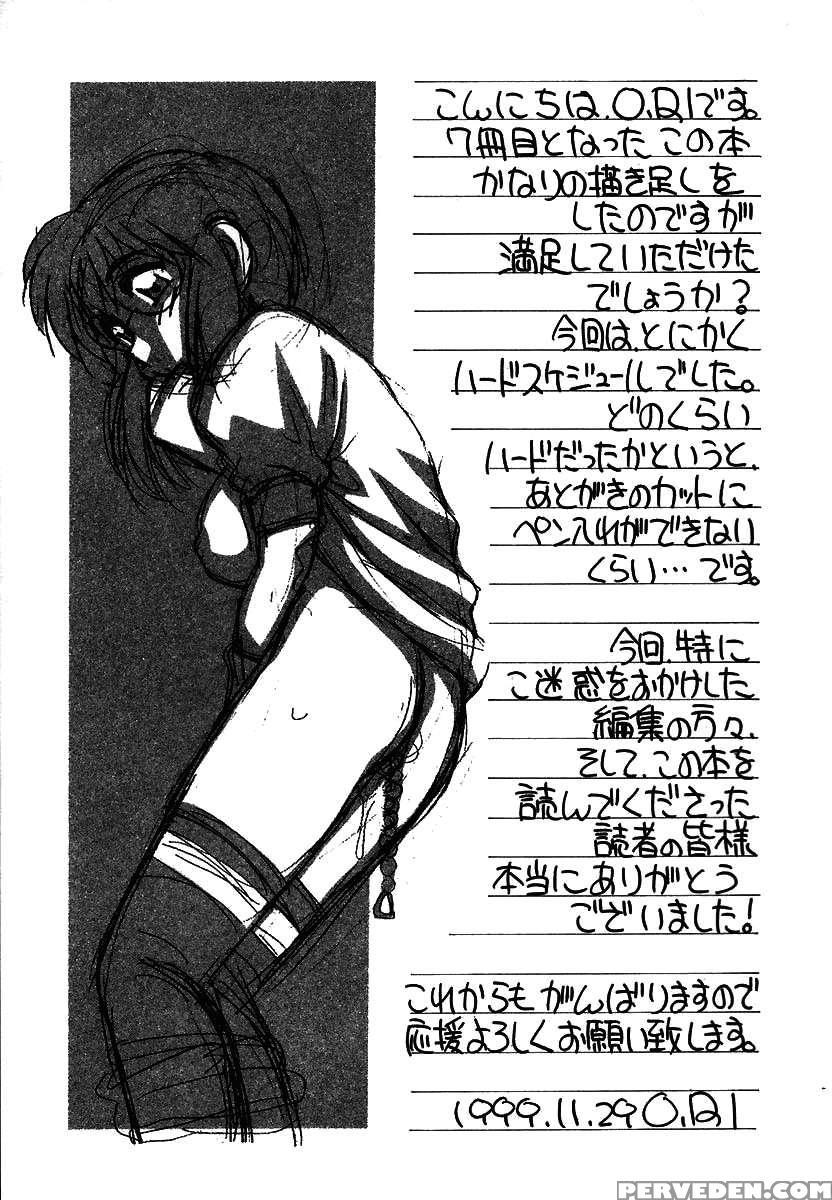 こんにちは、O.RIです。
7冊目となった、この本
かなりの描き足しを
したのですが
満足していただけた
でしょうか?
今回は、とにかく
ハードスケジュールでした。
どのくらい
ハードだったかというと、
あとがきのカットに
ペン入れができない
くらい…です。
今回、特に
ご迷惑をおかけした
編集の方々、
そして、この本を
読んでくださった
読者の皆様
本当にありがとう
ございました!
これからもがんばりますので
応援よろしくお願い致します。
1999.11.29 O.RI
PERVEDEN.COM